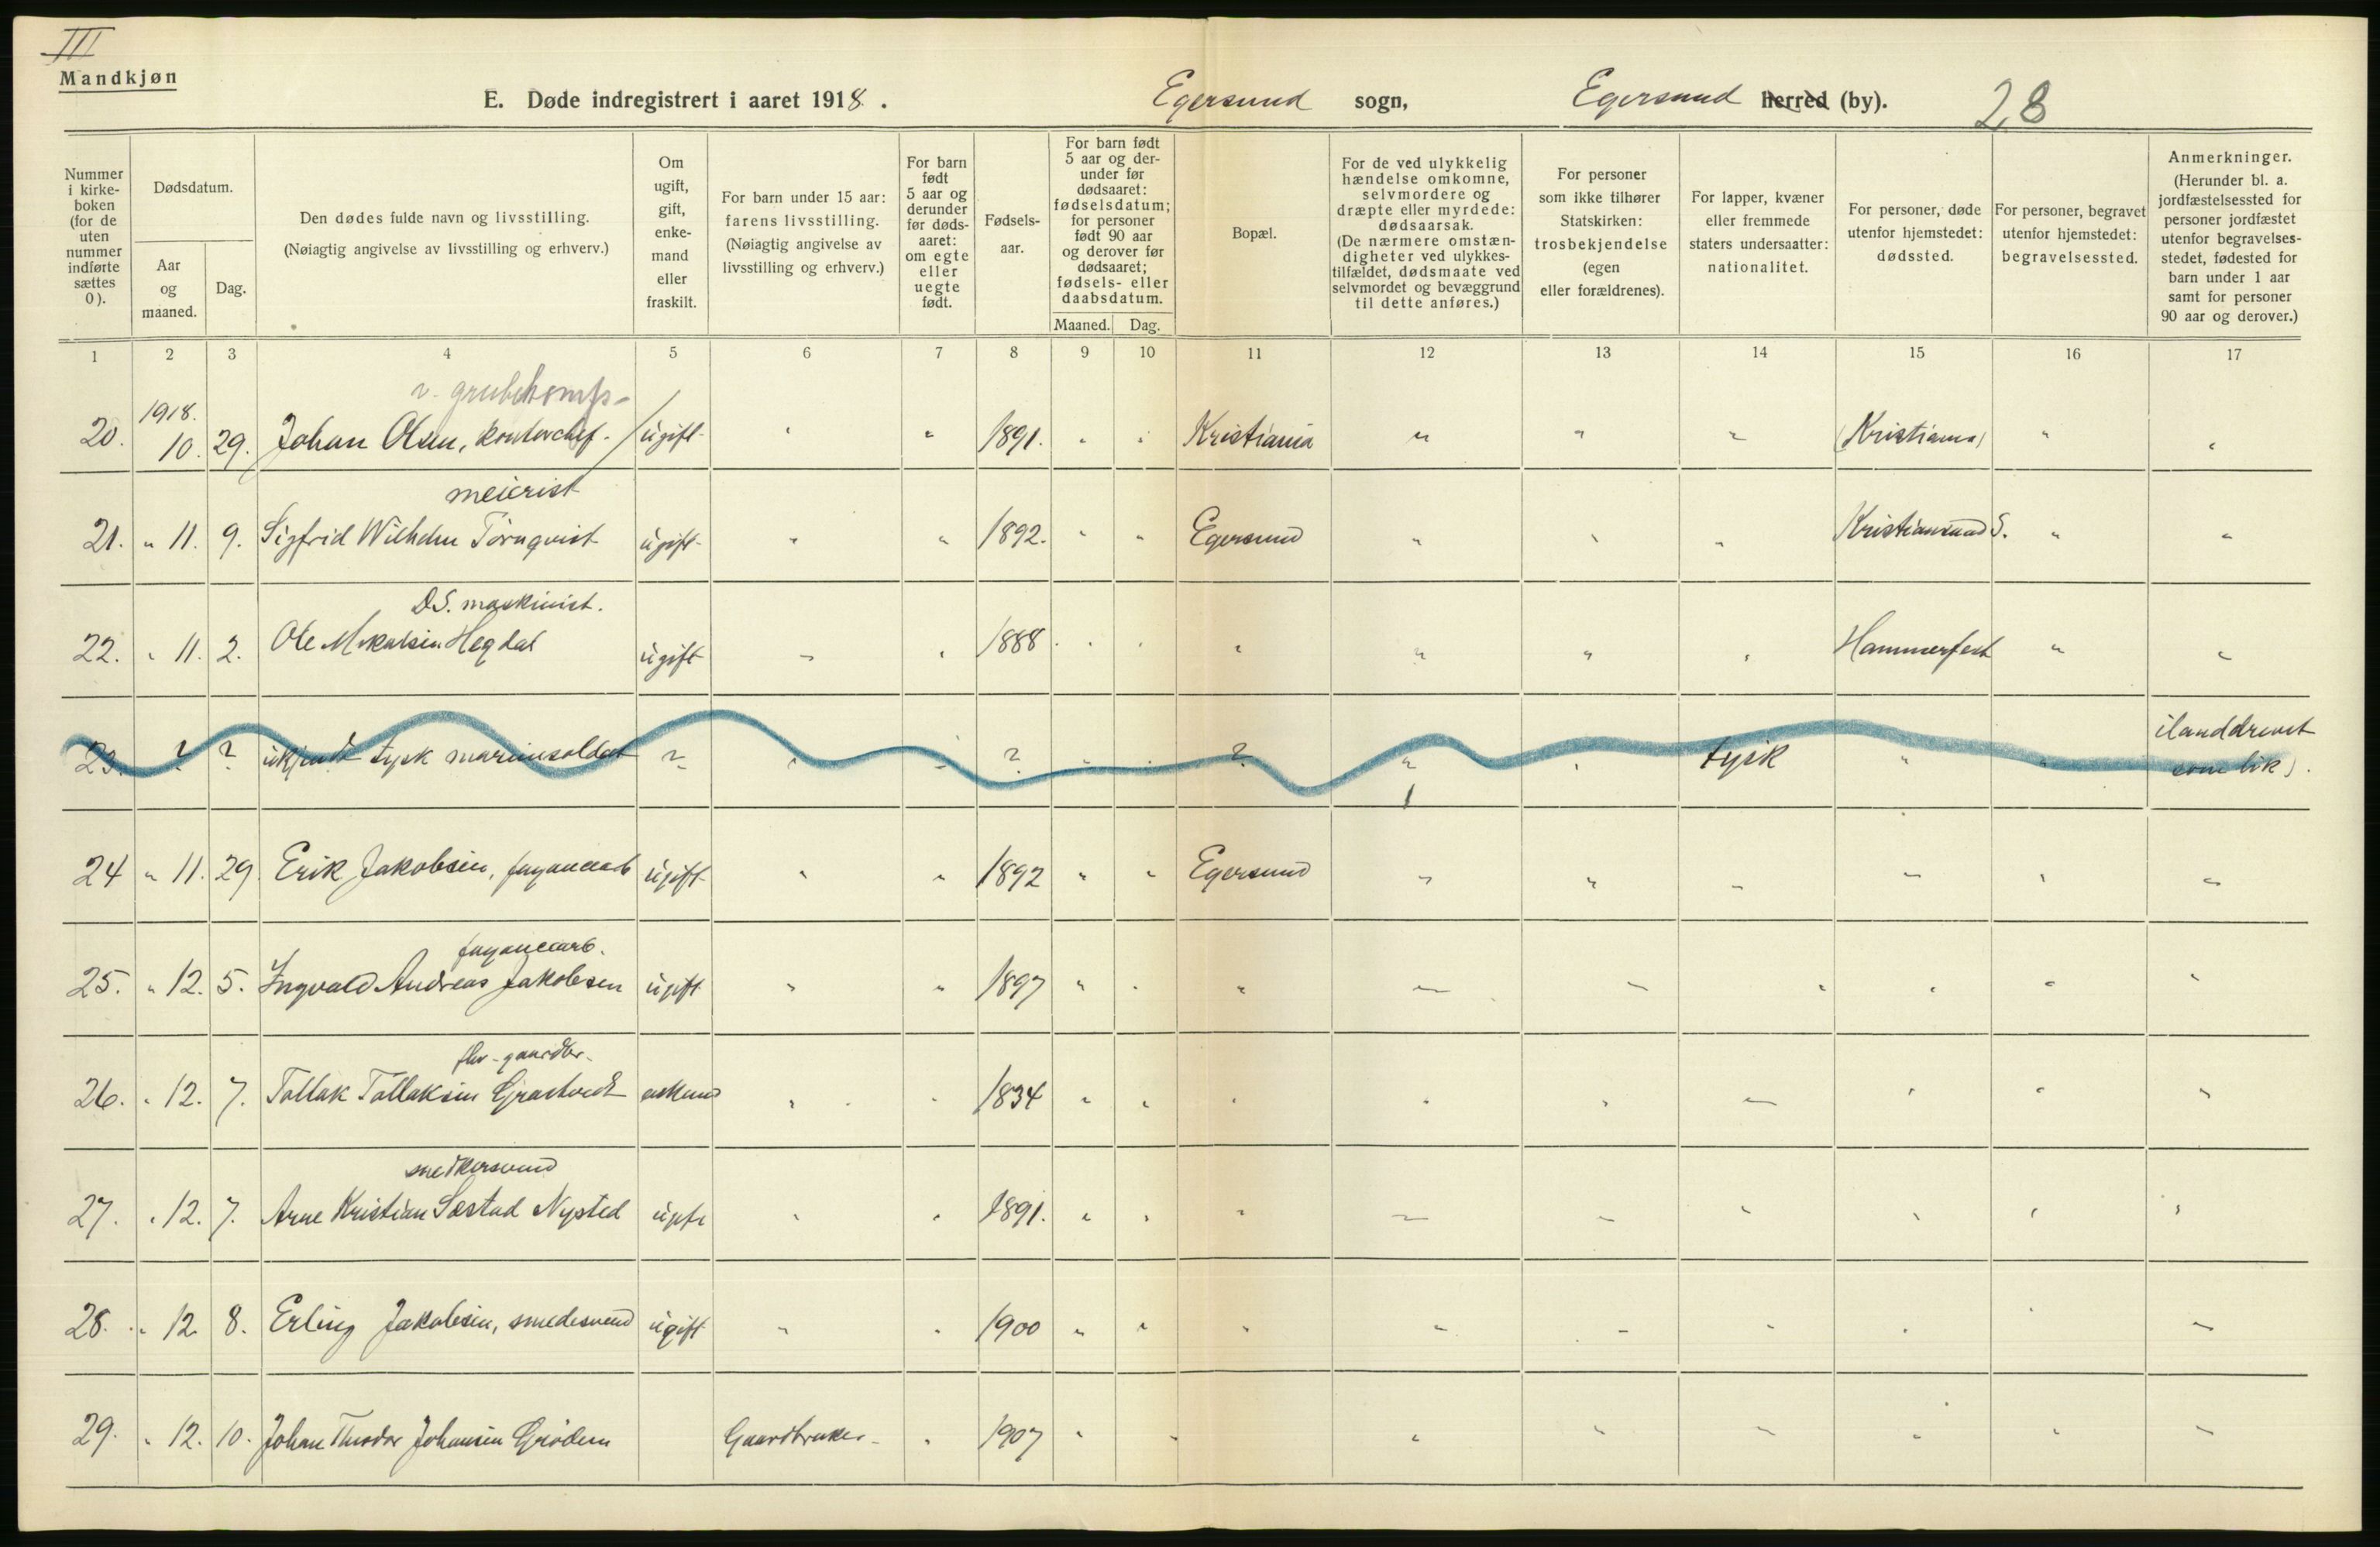 III
Mandkjøn
E. Døde indregistrert i aaret 1918. Egersund sogn, Egersund herred (by). 28
Nummer i kirke-boken (for de uten nummer indførte sættes 0).
Dødsdatum.
Aar og maaned.
Dag.
Den dødes fulde navn og livsstilling.
(Nøiagtig angivelse av livsstilling og erhverv.)
Om ugift, gift, enke-mand eller fraskilt.
For barn under 15 aar: farens livsstilling.
(Nøiagtig angivelse av livsstilling og erhverv.)
For barn født 5 aar og derunder før døds-aaret: om egte eller uegte født.
Fødsels-aar.
For barn født 5 aar og der-under før dødsaaret: fødselsdatum; for personer født 90 aar og derover før dødsaaret; fødsels- eller daabsdatum.
Maaned. Dag.
Bopæl.
For de ved ulykkelig hændelse omkomne, selvmordere og dræpte eller myrdede: dødsaarsak.
(De nærmere omstæn-digheter ved ulykkes-tilfældet, dødsmaate ved selvmordet og bevæggrund til dette anføres.)
For personer som ikke tilhører Statskirken: trosbekjendelse (egen eller forældrenes).
For lapper, kvæner eller fremmede staters undersaatter: nationalitet.
For personer, døde utenfor hjemstedet: dødssted.
For personer, begravet utenfor hjemstedet: begravelsessted.
Anmerkninger.
(Herunder bl. a. jordfæstelsessted for personer jordfæstet utenfor begravelses-stedet, fødested for barn under 1 aar samt for personer 90 aar og derover.)
1 2 3 4 5 6 7 8 9 10 11 12 13 14 15 16 17
v. grubekomp-
1918.
20. 10. 29. Johan Olsen, kontorchef. ugift " " 1891. " " Kristiania " " " (Kristiania) " "
meierist
21. " 11. 9. Sigfrid Wilhelm Törnqvist ugift " " 1892. " " Egersund " " " Kristiansand S. " "
D.S. maskinist.
22. " 11. 2. Ole Mikalsen Hegdal ugift " " 1888 " " " " " " Hammerfest " "
23. ? ? ukjendt tysk marinesoldat ? " " ? " " ? " " tysk " " ilanddrevet
som lik).
24 " 11. 29. Erik Jakobsen, fayancearb ugift " " 1892 " " Egersund " " " " " "
fayancearb.
25. " 12. 5. Ingvald Andreas Jakobsen ugift " " 1897 " " " " " " " " "
fhv. gaardbr.
26. " 12. 7. Tollak Tollaksen Grastveit enkem " " 1834 " " " " " " " " "
snedkersvend
27. " 12. 7. Arne Kristian Sæstad Nysted ugift " " 1891. " " " " " " " " "
28. " 12 8. Erling Jakobsen, smedesvend ugift " " 1900 " " " " " " " " "
29. " 12. 10. Johan Theodor Johansen Grødem Gaardbruker " 1907 " " " " " " " "